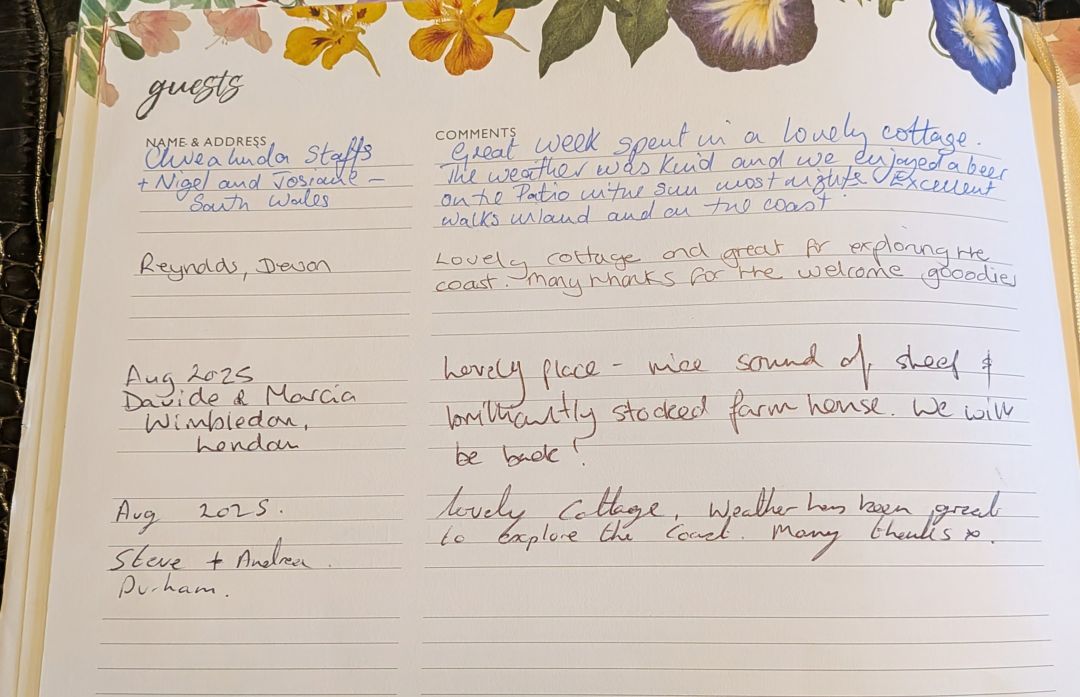 guests
NAME & ADDRESS
COMMENTS
Clive Linda Staffs
+ Nigel and Josiane –
South Wales
Great week spent in a lovely cottage.
The weather was kind and we enjoyed a beer
on the Patio in the sun most nights. Excellent
walks inland and on the coast.
Reynolds, Devon
Lovely cottage and great for exploring the
coast. Many thanks for the welcome gooodies
Aug 2025
Davide & Marcia
Wimbledon,
London
Lovely place - nice sound of sheep &
brilliantly stocked farm house. We will
be back!
Aug 2025.
Steve + Andrea.
Durham.
Lovely Cottage, Weather has been great
to explore the Coast. Many thanks x.